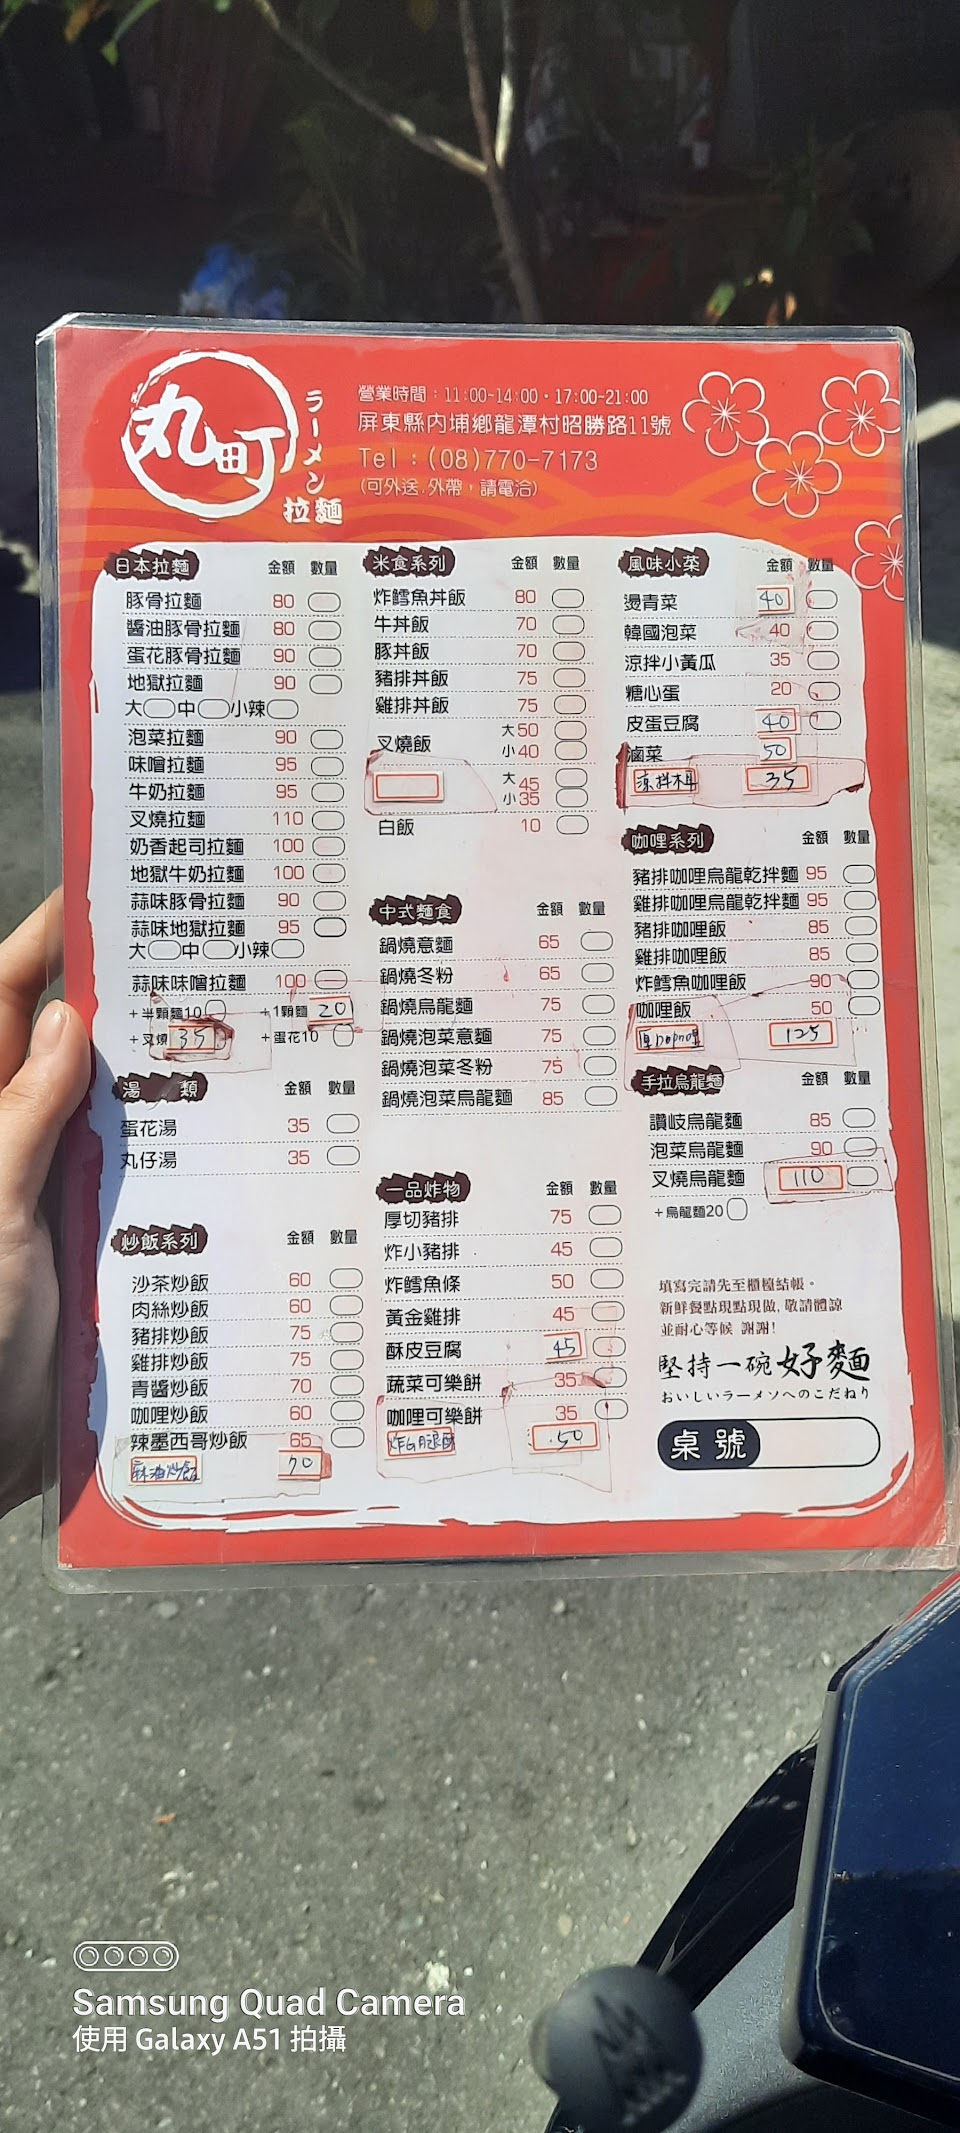 丸町
ラーメン
拉麵
營業時間：11:00-14:00・17:00-21:00
屏東縣內埔鄉龍潭村昭勝路11號
Tel：(08)770-7173
(可外送.外帶，請電洽)
日本拉麵 金額 數量
豚骨拉麵 80
醬油豚骨拉麵 80
蛋花豚骨拉麵 90
地獄拉麵 90
大 中 小辣
泡菜拉麵 90
味噌拉麵 95
牛奶拉麵 95
叉燒拉麵 110
奶香起司拉麵 100
地獄牛奶拉麵 100
蒜味豚骨拉麵 90
蒜味地獄拉麵 95
大 中 小辣
蒜味味噌拉麵 100
+半顆麵10 +1顆麵 20
+叉燒 35 +蛋花10
湯 類 金額 數量
蛋花湯 35
丸仔湯 35
炒飯系列 金額 數量
沙茶炒飯 60
肉絲炒飯 60
豬排炒飯 75
雞排炒飯 75
青醬炒飯 70
咖哩炒飯 60
辣墨西哥炒飯 65
麻油炒飯 70
米食系列 金額 數量
炸鱈魚丼飯 80
牛丼飯 70
豚丼飯 70
豬排丼飯 75
雞排丼飯 75
叉燒飯 大50
小40
大45
小35
白飯 10
中式麵食 金額 數量
鍋燒意麵 65
鍋燒冬粉 65
鍋燒烏龍麵 75
鍋燒泡菜意麵 75
鍋燒泡菜冬粉 75
鍋燒泡菜烏龍麵 85
一品炸物 金額 數量
厚切豬排 75
炸小豬排 45
炸鱈魚條 50
黃金雞排 45
酥皮豆腐 45
蔬菜可樂餅 35
咖哩可樂餅 35
50
風味小菜 金額 數量
燙青菜 40
韓國泡菜 40
涼拌小黃瓜 35
糖心蛋 20
皮蛋豆腐 40
滷菜 50
涼拌木耳 35
咖哩系列 金額 數量
豬排咖哩烏龍乾拌麵 95
雞排咖哩烏龍乾拌麵 95
豬排咖哩飯 85
雞排咖哩飯 85
炸鱈魚咖哩飯 90
咖哩飯 50
125
手拉烏龍麵 金額 數量
讚岐烏龍麵 85
泡菜烏龍麵 90
叉燒烏龍麵 110
+烏龍麵20
填寫完請先至櫃檯結帳。
新鮮餐點現點現做,敬請體諒
並耐心等候 謝謝!
堅持一碗好麵
おいしいラーメソへのこだねり
桌號
Samsung Quad Camera
使用 Galaxy A51 拍攝